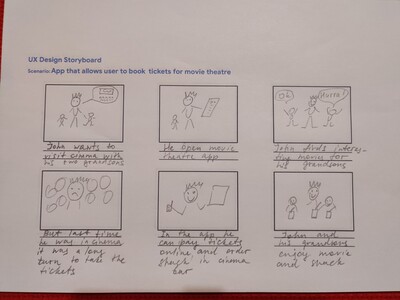 UX Design Storyboard
Scenario: App that allows user to book tickets for movie theatre
Hurra!
John wants to
visit cinema with
his two grandsons
He open movie
theatre app
John finds interes-
ting movie for
his grandsons
But last time
he was in cinema
it was a long
turn to take the
tickets
In the app he
can pay tickets
online and order
snack in cinema
bar
John and
his grandsons
enjoy movie
and snack